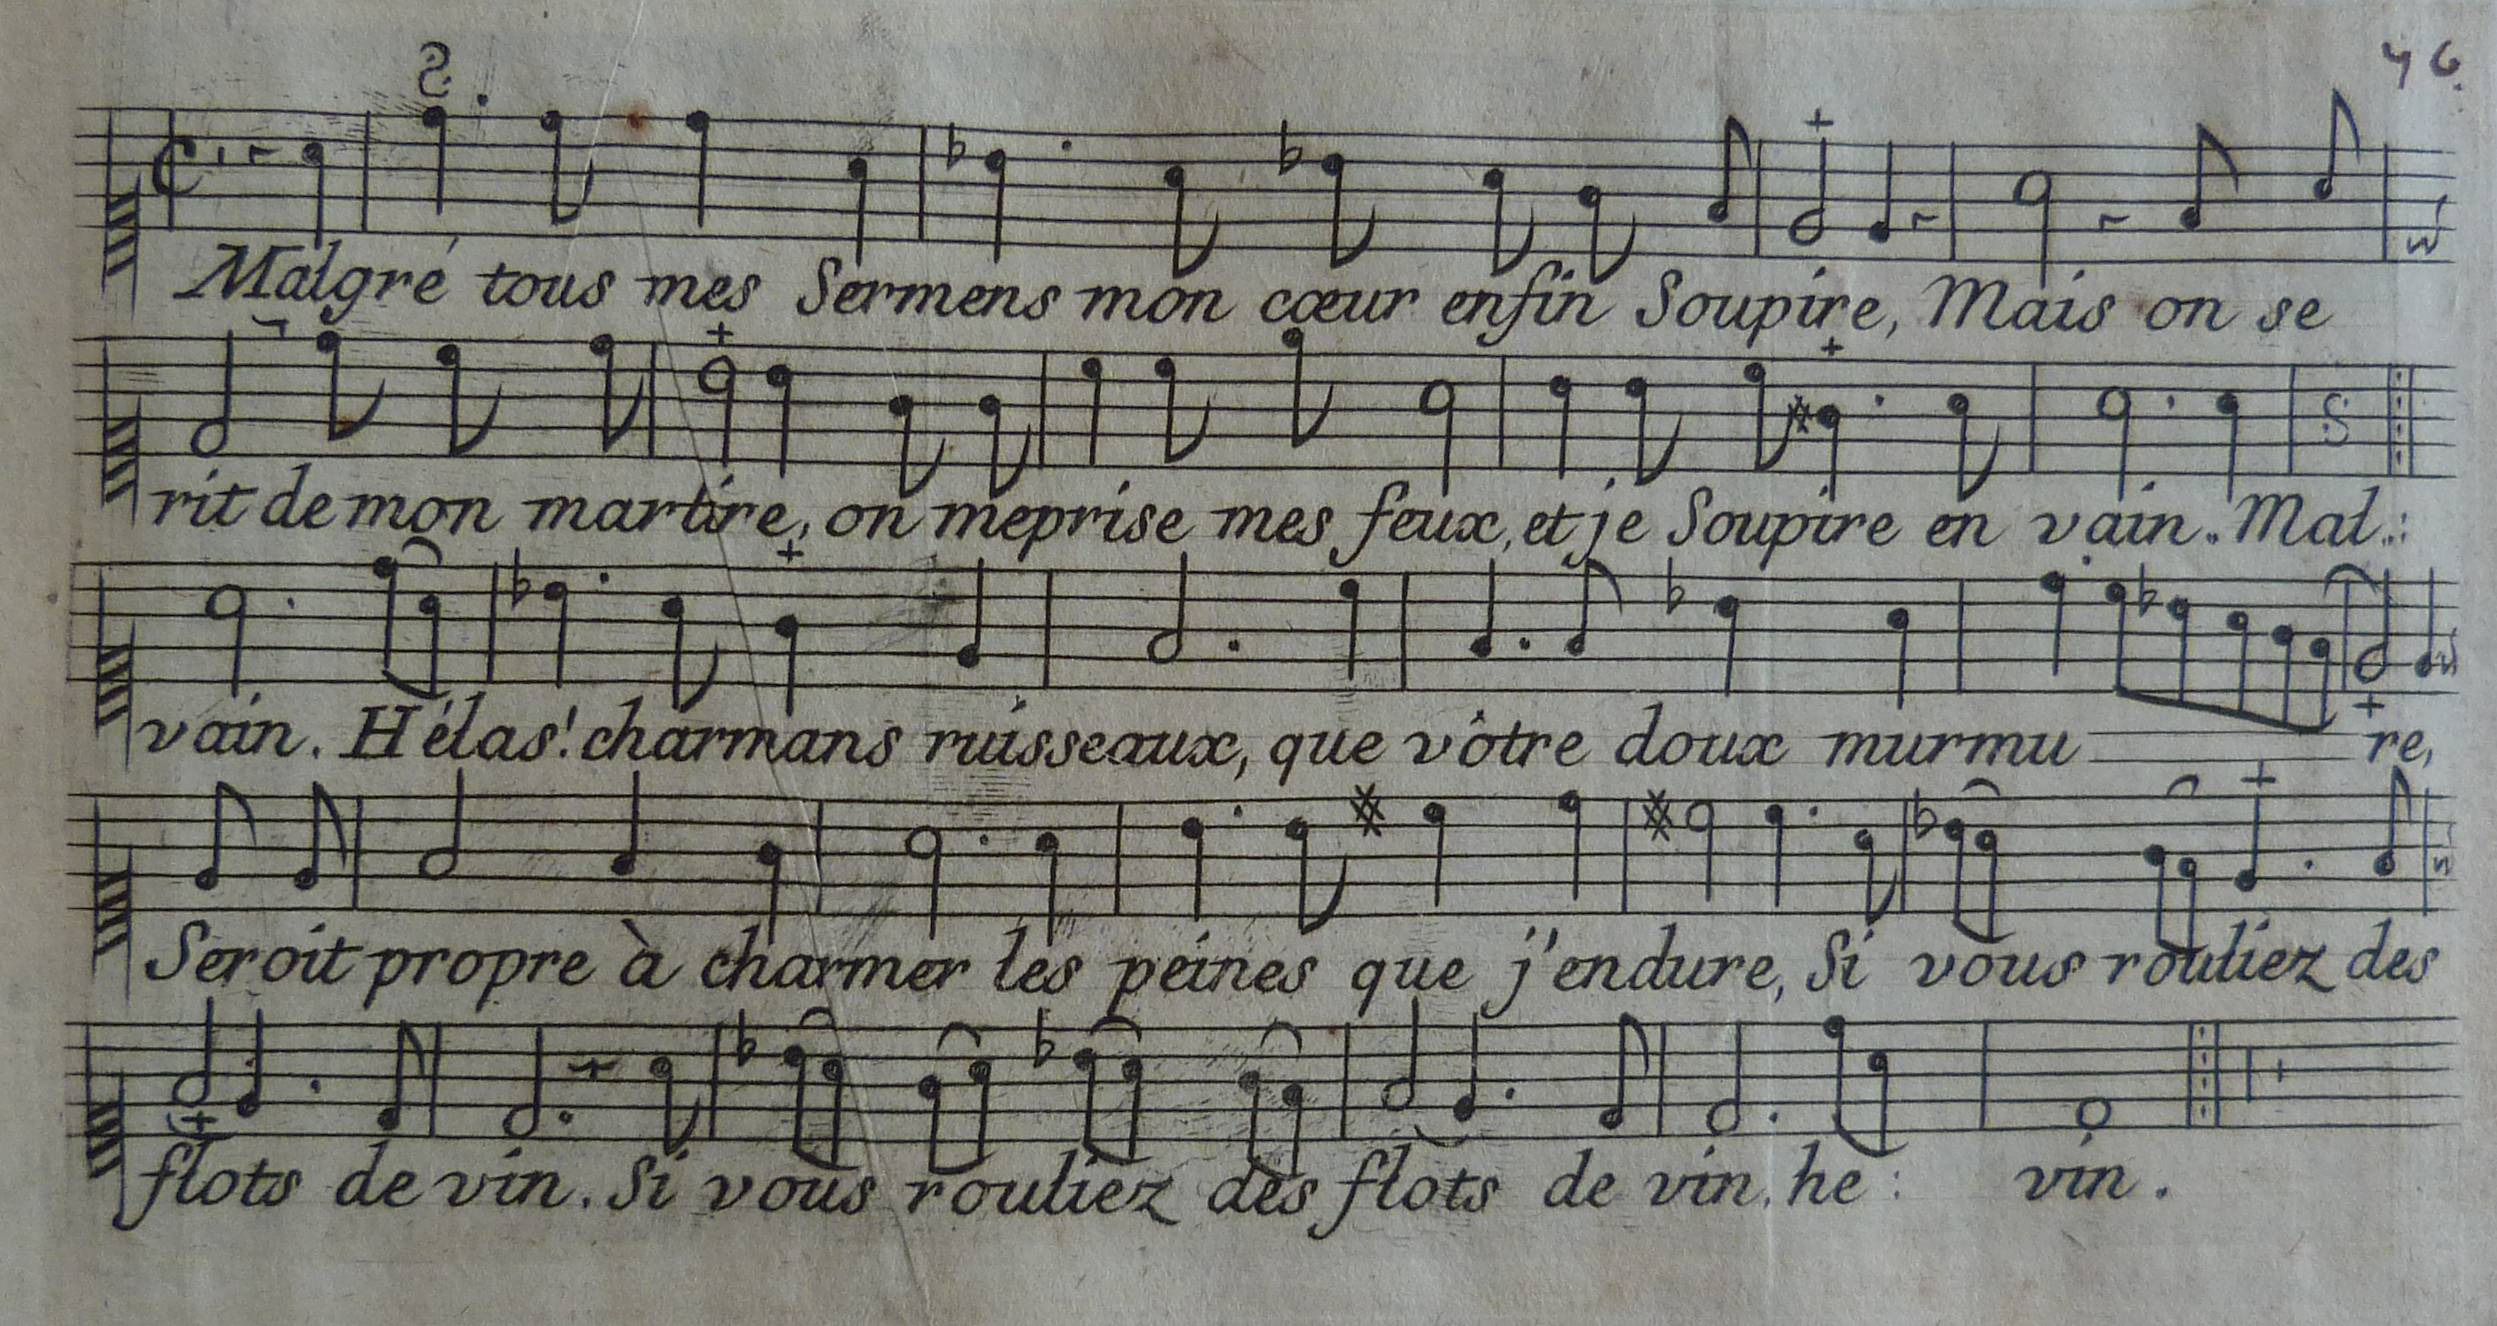 46.
Malgré tous mes Sermens mon cœur enfin Soupire, Mais on se
rit de mon martire, on meprise mes feux, et je Soupire en vain. Mal.:
vain. Hélas! charmans ruisseaux, que vôtre doux murmu re,
Seroit propre à charmer les peines que j'endure, Si vous rouliez des
flots de vin. Si vous rouliez des flots de vin. he: vin.